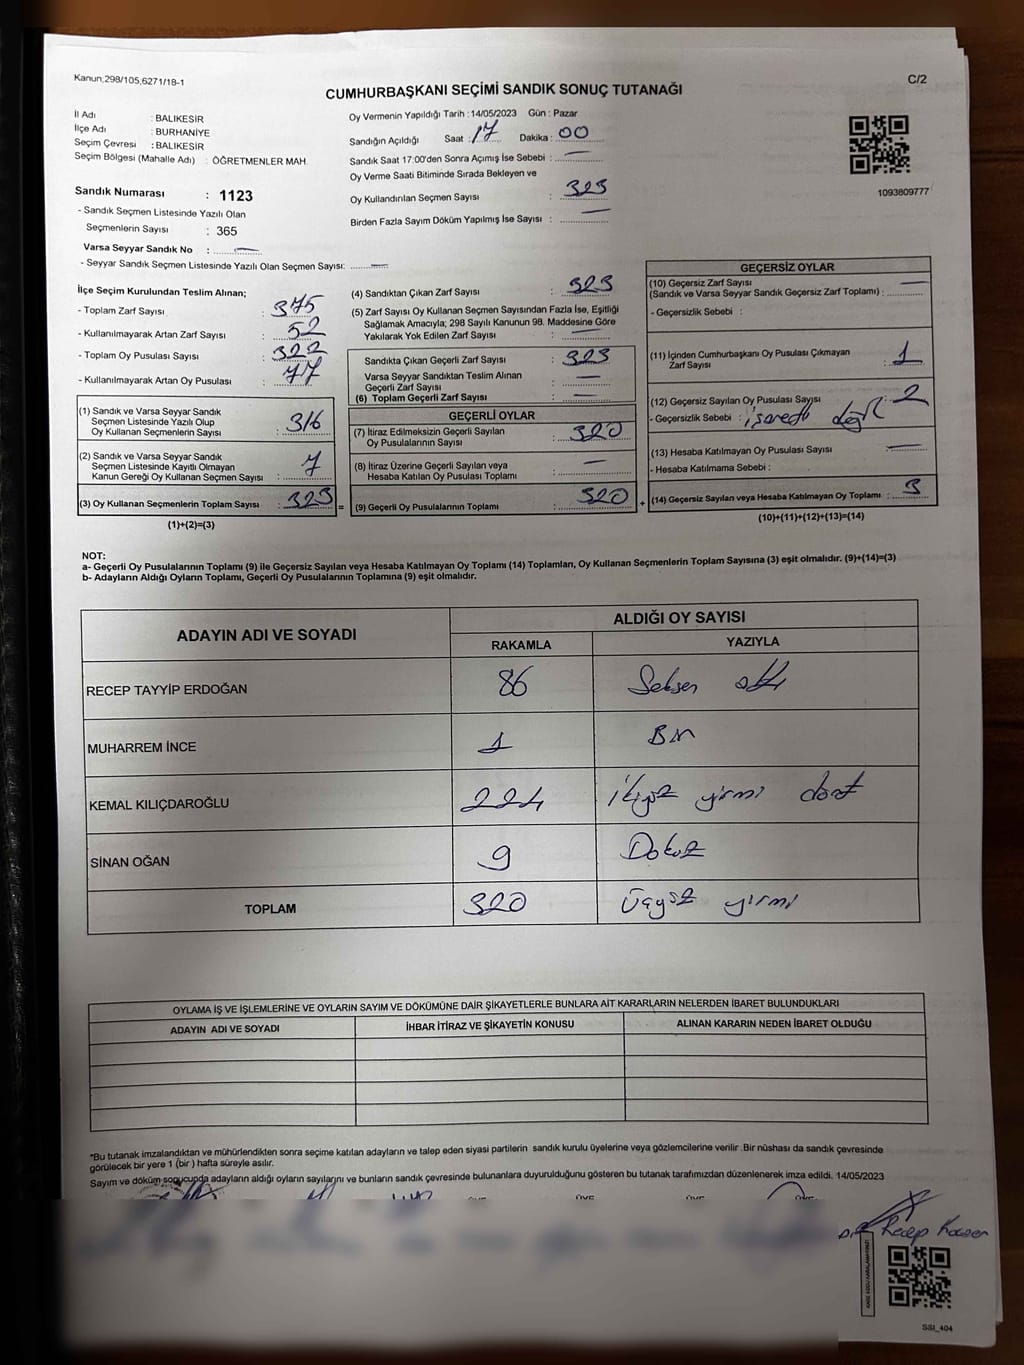 Kanun;298/105,6271/18-1
C/2
CUMHURBAŞKANI SEÇİMİ SANDIK SONUÇ TUTANAĞI
İl Adı : BALIKESİR
İlçe Adı : BURHANİYE
Seçim Çevresi : BALIKESİR
Seçim Bölgesi (Mahalle Adı) : ÖĞRETMENLER MAH.
Oy Vermenin Yapıldığı Tarih : 14/05/2023 Gün : Pazar
Sandığın Açıldığı Saat : 17 Dakika : 00
Sandık Saat 17:00'den Sonra Açımış İse Sebebi : —
Oy Verme Saati Bitiminde Sırada Bekleyen ve
Oy Kullandırılan Seçmen Sayısı : 323
Birden Fazla Sayım Döküm Yapılmış İse Sayısı : —
1093809777
Sandık Numarası : 1123
- Sandık Seçmen Listesinde Yazılı Olan
Seçmenlerin Sayısı : 365
Varsa Seyyar Sandık No : —
- Seyyar Sandık Seçmen Listesinde Yazılı Olan Seçmen Sayısı: —
İlçe Seçim Kurulundan Teslim Alınan;
- Toplam Zarf Sayısı : 375
- Kullanılmayarak Artan Zarf Sayısı : 52
- Toplam Oy Pusulası Sayısı : 322
- Kullanılmayarak Artan Oy Pusulası : 77
(1) Sandık ve Varsa Seyyar Sandık
Seçmen Listesinde Yazılı Olup
Oy Kullanan Seçmenlerin Sayısı : 316
(2) Sandık ve Varsa Seyyar Sandık
Seçmen Listesinde Kayıtlı Olmayan
Kanun Gereği Oy Kullanan Seçmen Sayısı : 7
(3) Oy Kullanan Seçmenlerin Toplam Sayısı : 323
(1)+(2)=(3)
(4) Sandıktan Çıkan Zarf Sayısı : 323
(5) Zarf Sayısı Oy Kullanan Seçmen Sayısından Fazla İse, Eşitliği
Sağlamak Amacıyla; 298 Sayılı Kanunun 98. Maddesine Göre
Yakılarak Yok Edilen Zarf Sayısı : —
Sandıkta Çıkan Geçerli Zarf Sayısı : 323
Varsa Seyyar Sandıktan Teslim Alınan
Geçerli Zarf Sayısı : —
(6) Toplam Geçerli Zarf Sayısı : —
GEÇERLİ OYLAR
(7) İtiraz Edilmeksizin Geçerli Sayılan
Oy Pusulalarının Sayısı : 320
(8) İtiraz Üzerine Geçerli Sayılan veya
Hesaba Katılan Oy Pusulası Toplamı : —
= (9) Geçerli Oy Pusulalarının Toplamı : 320
GEÇERSİZ OYLAR
(10) Geçersiz Zarf Sayısı
(Sandık ve Varsa Seyyar Sandık Geçersiz Zarf Toplamı) : —
- Geçersizlik Sebebi :
(11) İçinden Cumhurbaşkanı Oy Pusulası Çıkmayan
Zarf Sayısı : 1
(12) Geçersiz Sayılan Oy Pusulası Sayısı : 2
- Geçersizlik Sebebi :
(13) Hesaba Katılmayan Oy Pusulası Sayısı : —
- Hesaba Katılmama Sebebi :
+ (14) Geçersiz Sayılan veya Hesaba Katılmayan Oy Toplamı : 3
(10)+(11)+(12)+(13)=(14)
NOT:
a- Geçerli Oy Pusulalarının Toplamı (9) ile Geçersiz Sayılan veya Hesaba Katılmayan Oy Toplamı (14) Toplamları, Oy Kullanan Seçmenlerin Toplam Sayısına (3) eşit olmalıdır. (9)+(14)=(3)
b- Adayların Aldığı Oyların Toplamı, Geçerli Oy Pusulalarının Toplamına (9) eşit olmalıdır.
ADAYIN ADI VE SOYADI
ALDIĞI OY SAYISI
RAKAMLA YAZIYLA
RECEP TAYYİP ERDOĞAN 86 Seksen altı
MUHARREM İNCE 1 Bir
KEMAL KILIÇDAROĞLU 224 ikiyüz yirmi dört
SİNAN OĞAN 9 Dokuz
TOPLAM 320 Üçyüz yirmi
OYLAMA İŞ VE İŞLEMLERİNE VE OYLARIN SAYIM VE DÖKÜMÜNE DAİR ŞİKAYETLERLE BUNLARA AİT KARARLARIN NELERDEN İBARET BULUNDUKLARI
ADAYIN ADI VE SOYADI İHBAR İTİRAZ VE ŞİKAYETİN KONUSU ALINAN KARARIN NEDEN İBARET OLDUĞU
*Bu tutanak imzalandıktan ve mühürlendikten sonra seçime katılan adayların ve talep eden siyasi partilerin sandık kurulu üyelerine veya gözlemcilerine verilir. Bir nüshası da sandık çevresinde
görülecek bir yere 1 (bir ) hafta süreyle asılır.
Sayım ve döküm sonucunda adayların aldığı oyların sayılarını ve bunların sandık çevresinde bulunanlara duyurulduğunu gösteren bu tutanak tarafımızdan düzenlenerek imza edildi. 14/05/2023
Recep
SSI_404